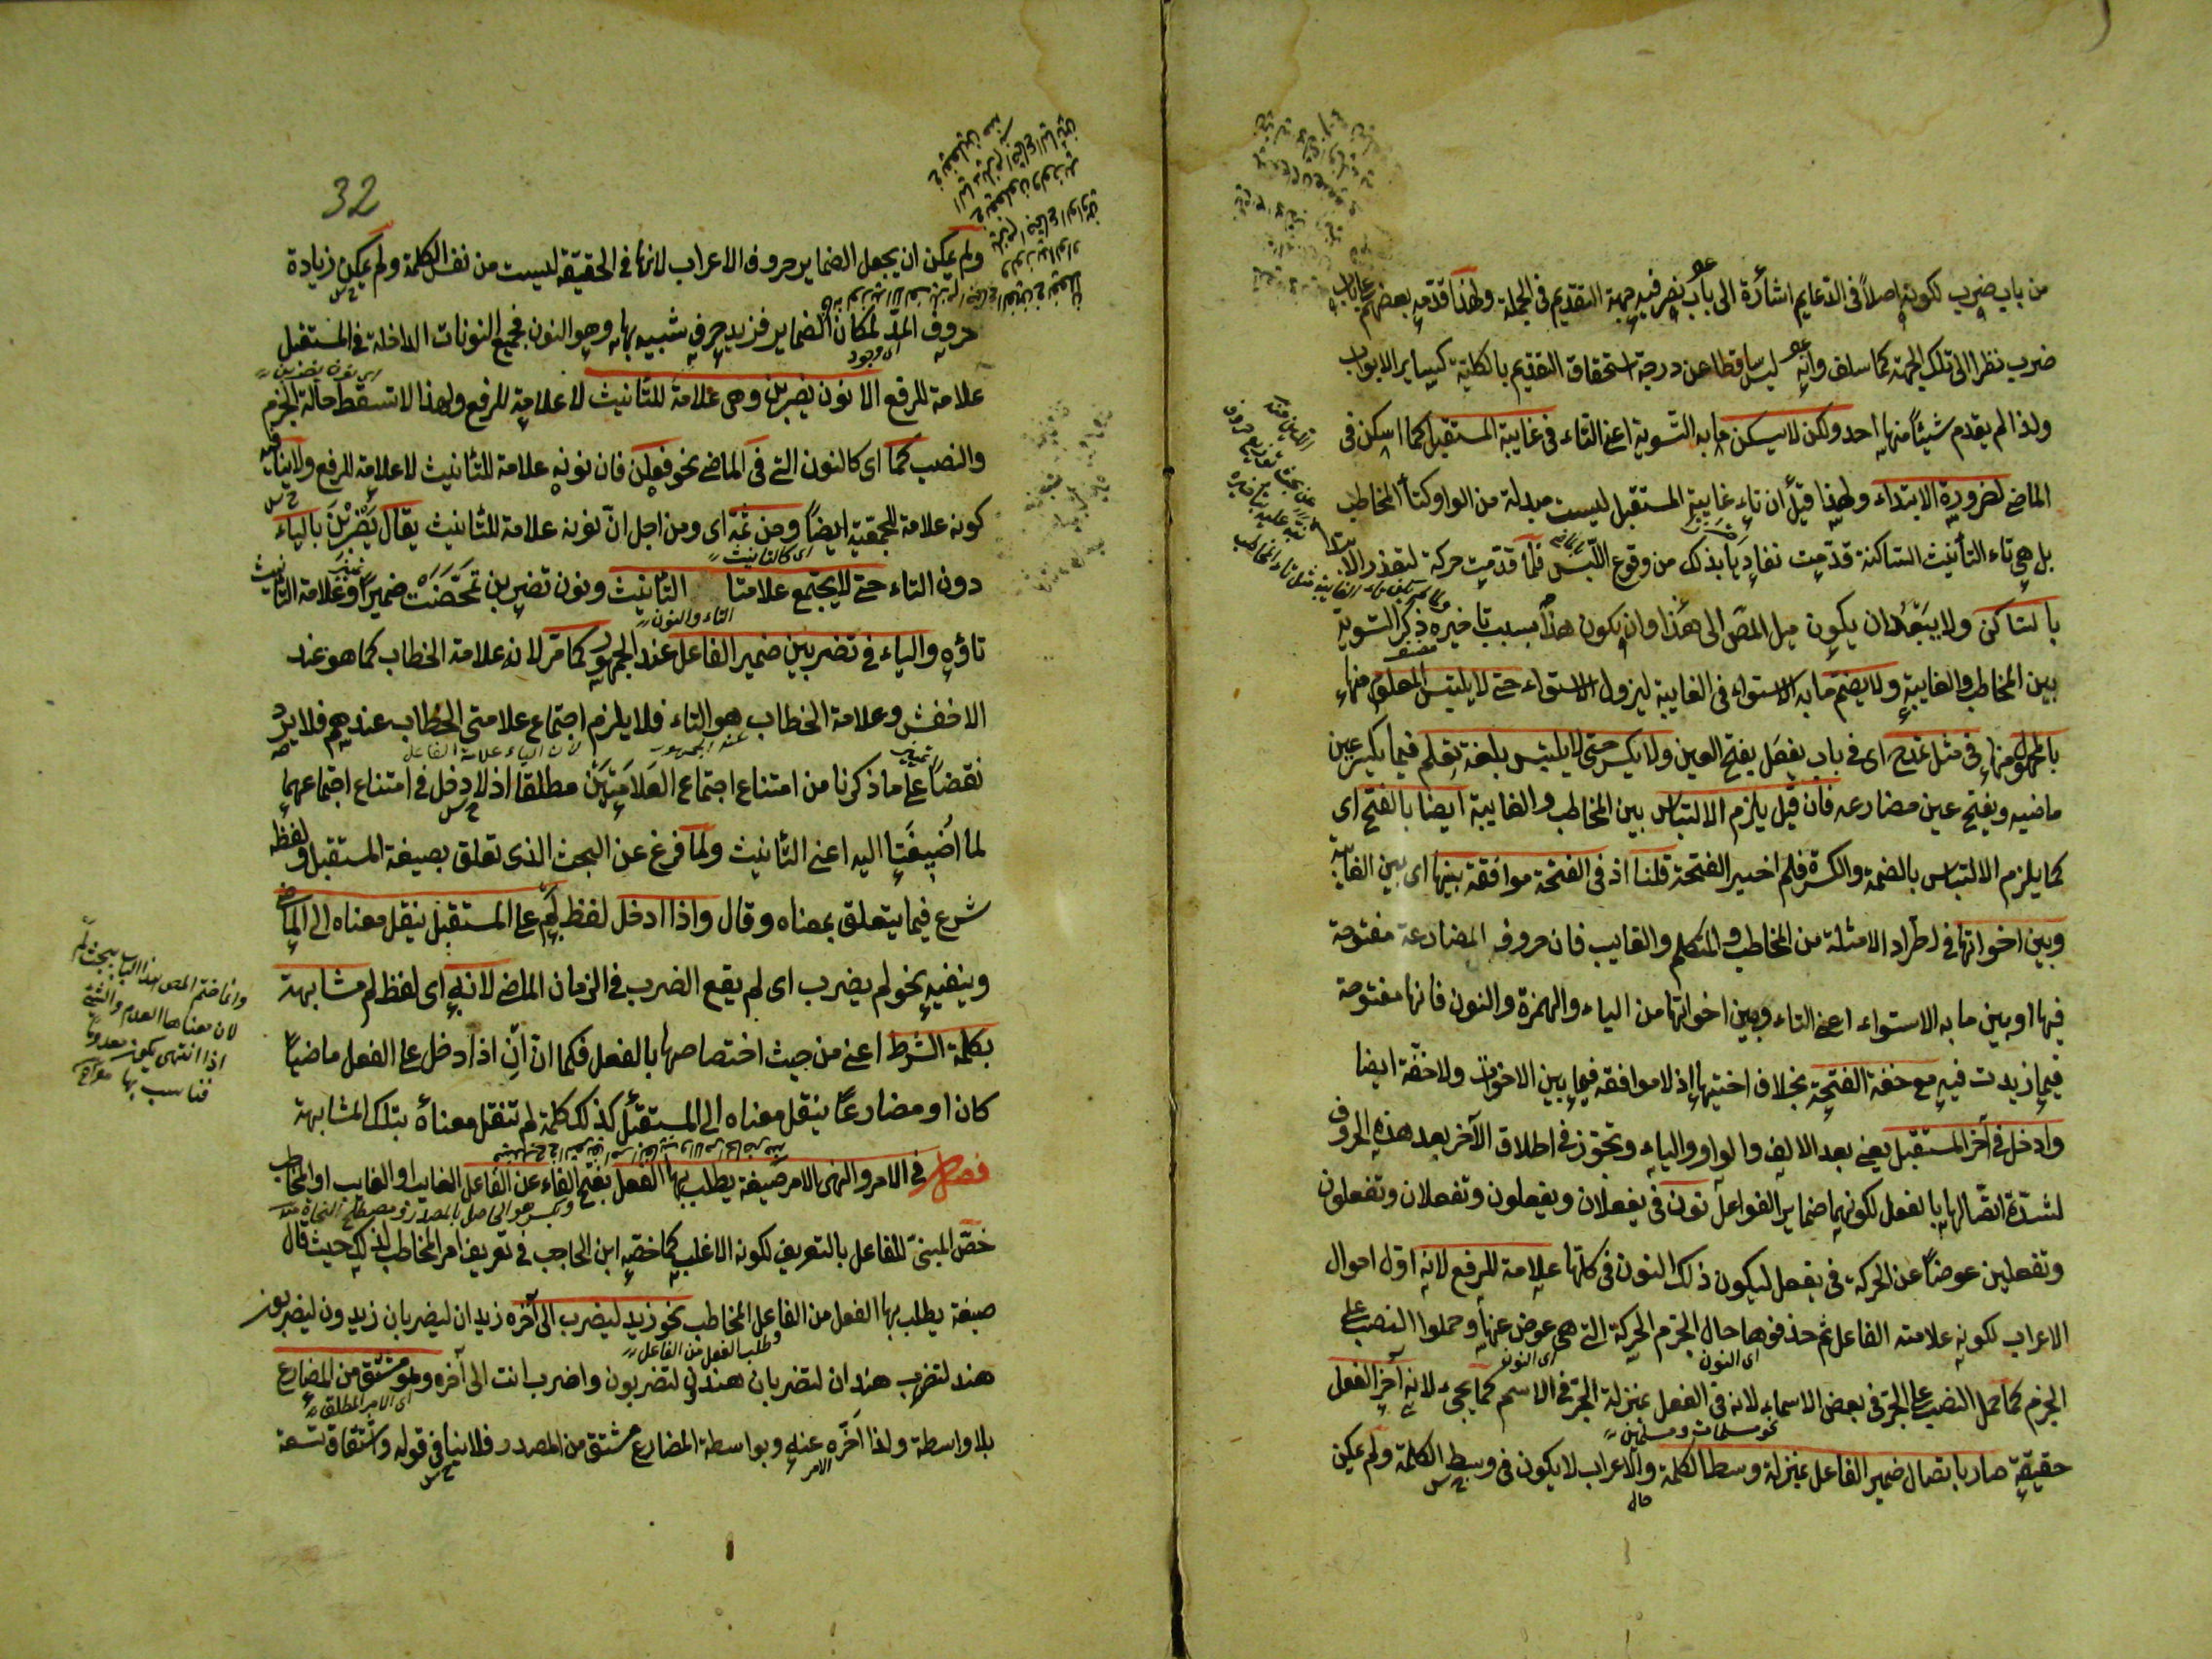 من باب ضرب لكونه اصلاً فى الدعايم اشارة الى باب نصر فيه جهة التقديم فى الجملة ولهذا قدمه بعضهم على باب
ضرب نظرا الى تلك الجهة كما سلف وانه ليس ساقطا عن درجة استحقاق التقديم بالكلية كساير الابواب
ولذا لم يقدم شيئاً منها احد ولكن لا يسكن ما به التسوية اعنى التاء فى غايبة المستقبل كما اسكن فى
الماضى لضرورة الابتداء ولهذا قيل ان تاء غايبة المستقبل ليست مبدلة من الواو كتاء المخاطب
بل هى تاء التأنيث الساكنة قدمت تفادياً بذلك من وقوع اللبس فلما قدمت حركة لتعذر الابتداء
بالساكن ولا يبعد ان يكون ميل المص الى هذا وان يكون هذا بسبب تاخيره ذكر التسوية
بين المخاطب والغايبة ولا يضم ما به الاستواء فى الغايبة ليزول الاستواء حتى لا يلتبس المعلوم منها
بالمجهول منها فى مثل تمدح اى فى باب يفعل بفتح العين ولا يكسر حتى لا يلتبس بلغة تعلم فيما يكسر عين
ماضيه ويفتح عين مضارعه فان قيل يلزم الالتباس بين المخاطب والغايبة ايضا بالفتح اى
كما يلزم الالتباس بالضمة والكسرة فلم اختير الفتحة قلنا اذ فى الفتحة موافقة بينها اى بين الغايبة
وبين اخواتها فى اطراد الامثلة من المخاطب والمتكلم والغايب فان حروف المضارعة مفتوحة
فيها او بين ما به الاستواء اعنى التاء وبين اخواتها من الياء والهمزة والنون فانها مفتوحة
فيما زيدت فيه مع خفة الفتحة بخلاف اختيها اذ لا موافقة فيها بين الاخوات ولا خفة ايضا
وادخل فى آخر المستقبل يعنى بعد الالف والواو والياء وتجوز فى اطلاق الآخر بعد هذه الحروف
لشدة اتصالها بالفعل لكونها ضماير الفواعل نون فى يفعلان ويفعلون وتفعلان وتفعلون
وتفعلين عوضاً عن الحركة فى يفعل ليكون ذلك النون فى كلها علامة للرفع لانه اول احوال
الاعراب لكونه علامة الفاعل ثم حذفوها حال الجزم الحركة التى هى عوض عنها وحملوا النصب على
اى النون اى النون
الجزم كما حمل النصب على الجر فى بعض الاسماء لانه فى الفعل بمنزلة الجر فى الاسم كما يجىء لانه آخر الفعل
نحو مسلمات ومسلمين
حقيقة صار باتصال ضمير الفاعل بمنزلة وسط الكلمة والاعراب لا يكون فى وسط الكلمة ولم يمكن
32
ولم يمكن ان يجعل الضماير حروف الاعراب لانها فى الحقيقة ليست من نفس الكلمة ولم يمكن زيادة
حروف المد لمكان الضماير فزيد حرف شبيه بها وهو النون فجميع النونات الداخلة فى المستقبل
اى وجود
علامة للرفع الا نون يضربن وهى علامة للتأنيث لا علامة للرفع ولهذا لا تسقط حالة الجزم
والنصب كما اى كالنون التى فى الماضى نحو فعلن فان نونه علامة للتأنيث لا علامة للرفع ولا ينافيه
كونه علامة للجمعية ايضاً ومن ثمة اى ومن اجل ان نونه علامة للتأنيث يقال يضربن بالياء
اى كالتانيث
دون التاء حتى لا يجتمع علامتا التأنيث ونون تضربن تمحضت ضميراً وعلامة التأنيث
التاء والنون
تاؤه والياء فى تضربين ضمير الفاعل عند الجمهور كما مر لانه علامة الخطاب كما هو عند
الاخفش وعلامة الخطاب هو التاء فلا يلزم اجتماع علامتى الخطاب عندهم فلا يرد
عند الجمهور لان الياء علامة الفاعل
نقضاً على ما ذكرنا من امتناع اجتماع العلامتين مطلقا اذ لا دخل فى امتناع اجتماعهما
لما اضيفتا اليه اعنى التأنيث ولما فرغ عن البحث الذى تعلق بصيغة المستقبل ولفظه
شرع فيما يتعلق بمعناه وقال واذا ادخل لفظ لم على المستقبل ينقل معناه الى الماضى
وينفيه نحو لم يضرب اى لم يقع الضرب فى الزمان الماضى لانه اى لفظ لم مشابهة
بكلمة الشرط اعنى من حيث اختصاصها بالفعل فكما ان ان اذا دخل على الفعل ماضياً
كان او مضارعاً ينقل معناه الى المستقبل كذلك كلمة لم تنقل معناه بتلك المشابهة
فصل فى الامر والنهى الامر صيغة يطلب بها الفعل بفتح الفاء عن الفاعل الغايب او المخاطب
وبكسر هو الحاصل بالمصدر ومصطلح النحاة منه
خص المبنى للفاعل بالتعريف لكونه الاغلب كما خصه ابن الحاجب فى تعريف امر المخاطب لذلك حيث قال
صيغة يطلب بها الفعل من الفاعل المخاطب نحو زيد ليضرب الى آخره زيدان ليضربان زيدون ليضربون
وطلب الفعل من الفاعل
هند لتضرب هندان لتضربان هندن لتضربون واضرب انت الى آخره وهو مشتق من المضارع
اى الامر المطلق
بلا واسطة ولذا اخره عنه وبواسطة المضارع مشتق من المصدر فلا ينافى قوله واشتقاق تسعة
الامر
وانما ختم المص هذا الباب ببحث لم
لان معناها العدم والشئ
اذا انتهى يكون معدوماً
فناسب بها